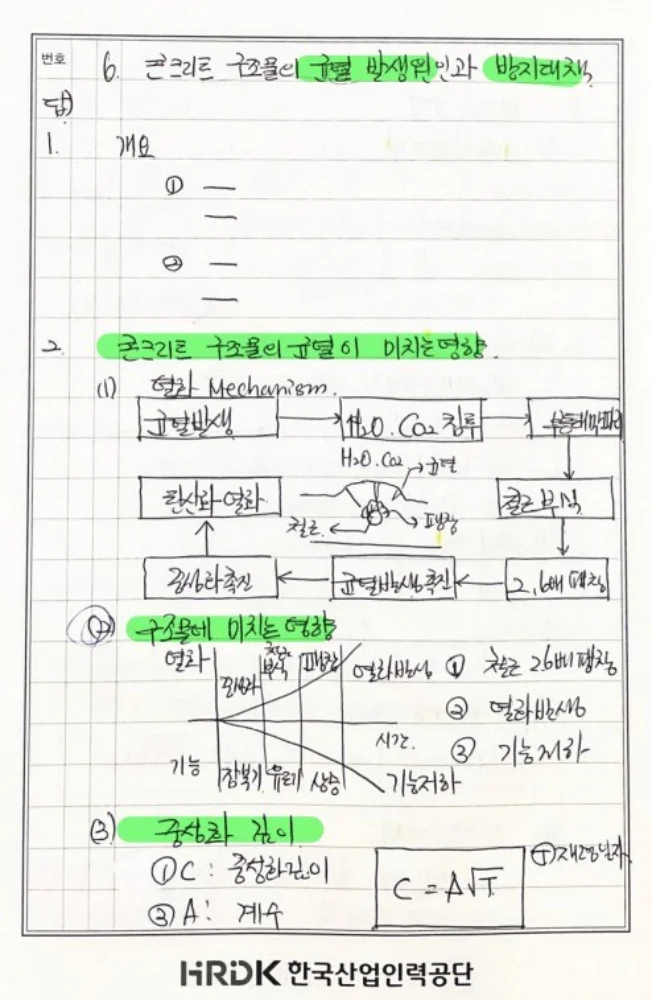 번호
6. 콘크리트 구조물의 균열 발생원인과 방지대책.
답)
1. 개요
① —
—
② —
—
2. 콘크리트 구조물의 균열이 미치는영향.
(1) 열화 Mechanism.
균열발생 → H2O.CO2 침투 → 부동태막파괴
H2O.CO2 균열
탄산화·열화 철근 팽창 철근부식
중성화촉진 ← 균열발생촉진 ← 2.6배 팽창
(2) 구조물에 미치는영향
열화 부식 팽창 열화발생 ① 철근 2.6배팽창
② 열화발생
시간. ③ 기능저하
기능 잠복기 상승 기능저하
(3) 중성화 깊이
① C : 중성화깊이 C = A√T ⓣ재령일자
② A : 계수
HRDK 한국산업인력공단